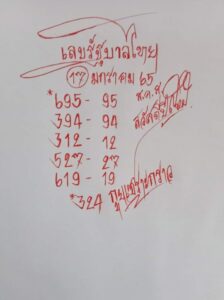 เลขรัฐบาลไทย
17 มกราคม 65
*695 - 95
394 - 94
312 - 12
527 - 27
619 - 19
*324
ส.ค.ส
สวัสดีปีใหม่